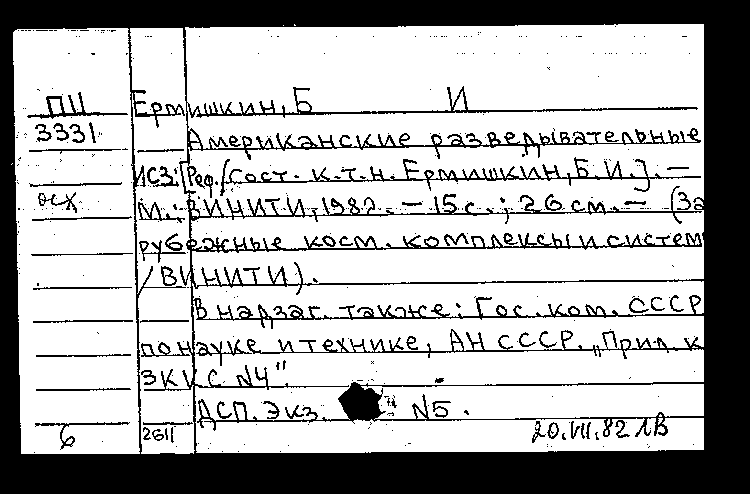 ПЦ Ермишкин, Б И
3331 Американские разведывательные
ИСЗ: [Реф./Сост. к.т.н. Ермишкин, Б.И.]. —
осх М.: ВИНИТИ, 1982. — 15 с.; 26 см. — (За
рубежные косм. комплексы и систем
/ВИНИТИ).
В надзаг. также: Гос. ком. СССР
по науке и технике, АН СССР. „Прил. к
ЗККС №4".
ДСП. Экз. №5.
6 2611 20.VII.82 ЛВ